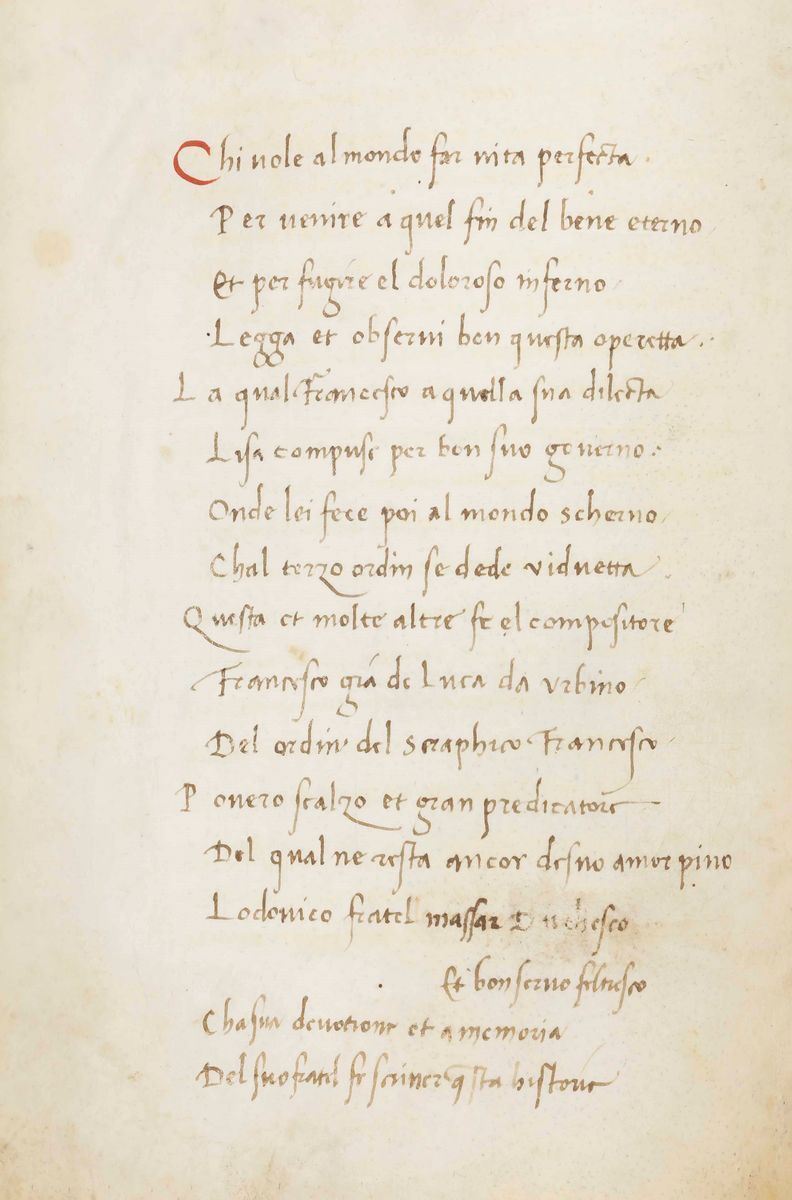 Chi uole al mondo far uita perfecta
Per uenire a quel fin del bene eterno
Et per fugire el doloroso inferno
Legga et obserui ben questa operetta
La qual Francesco a quella sua dilecta
Lisa compuse per ben suo gouerno
Onde lei fece poi al mondo scherno
Chal terzo ordin se dede viduetta
Questa et molte altre fe el compositore
Francesco già de Luca da vrbino
Del ordin del seraphico Francesco
Pouero scalzo et gran predicatore
Del qual ne resta ancor de suo amor pino
Lodouico fratel massar Duchesco
Et bon seruo feltresco
Cha sua deuotione et a memoria
Del suo fratel fe scriuer q̄sta historia